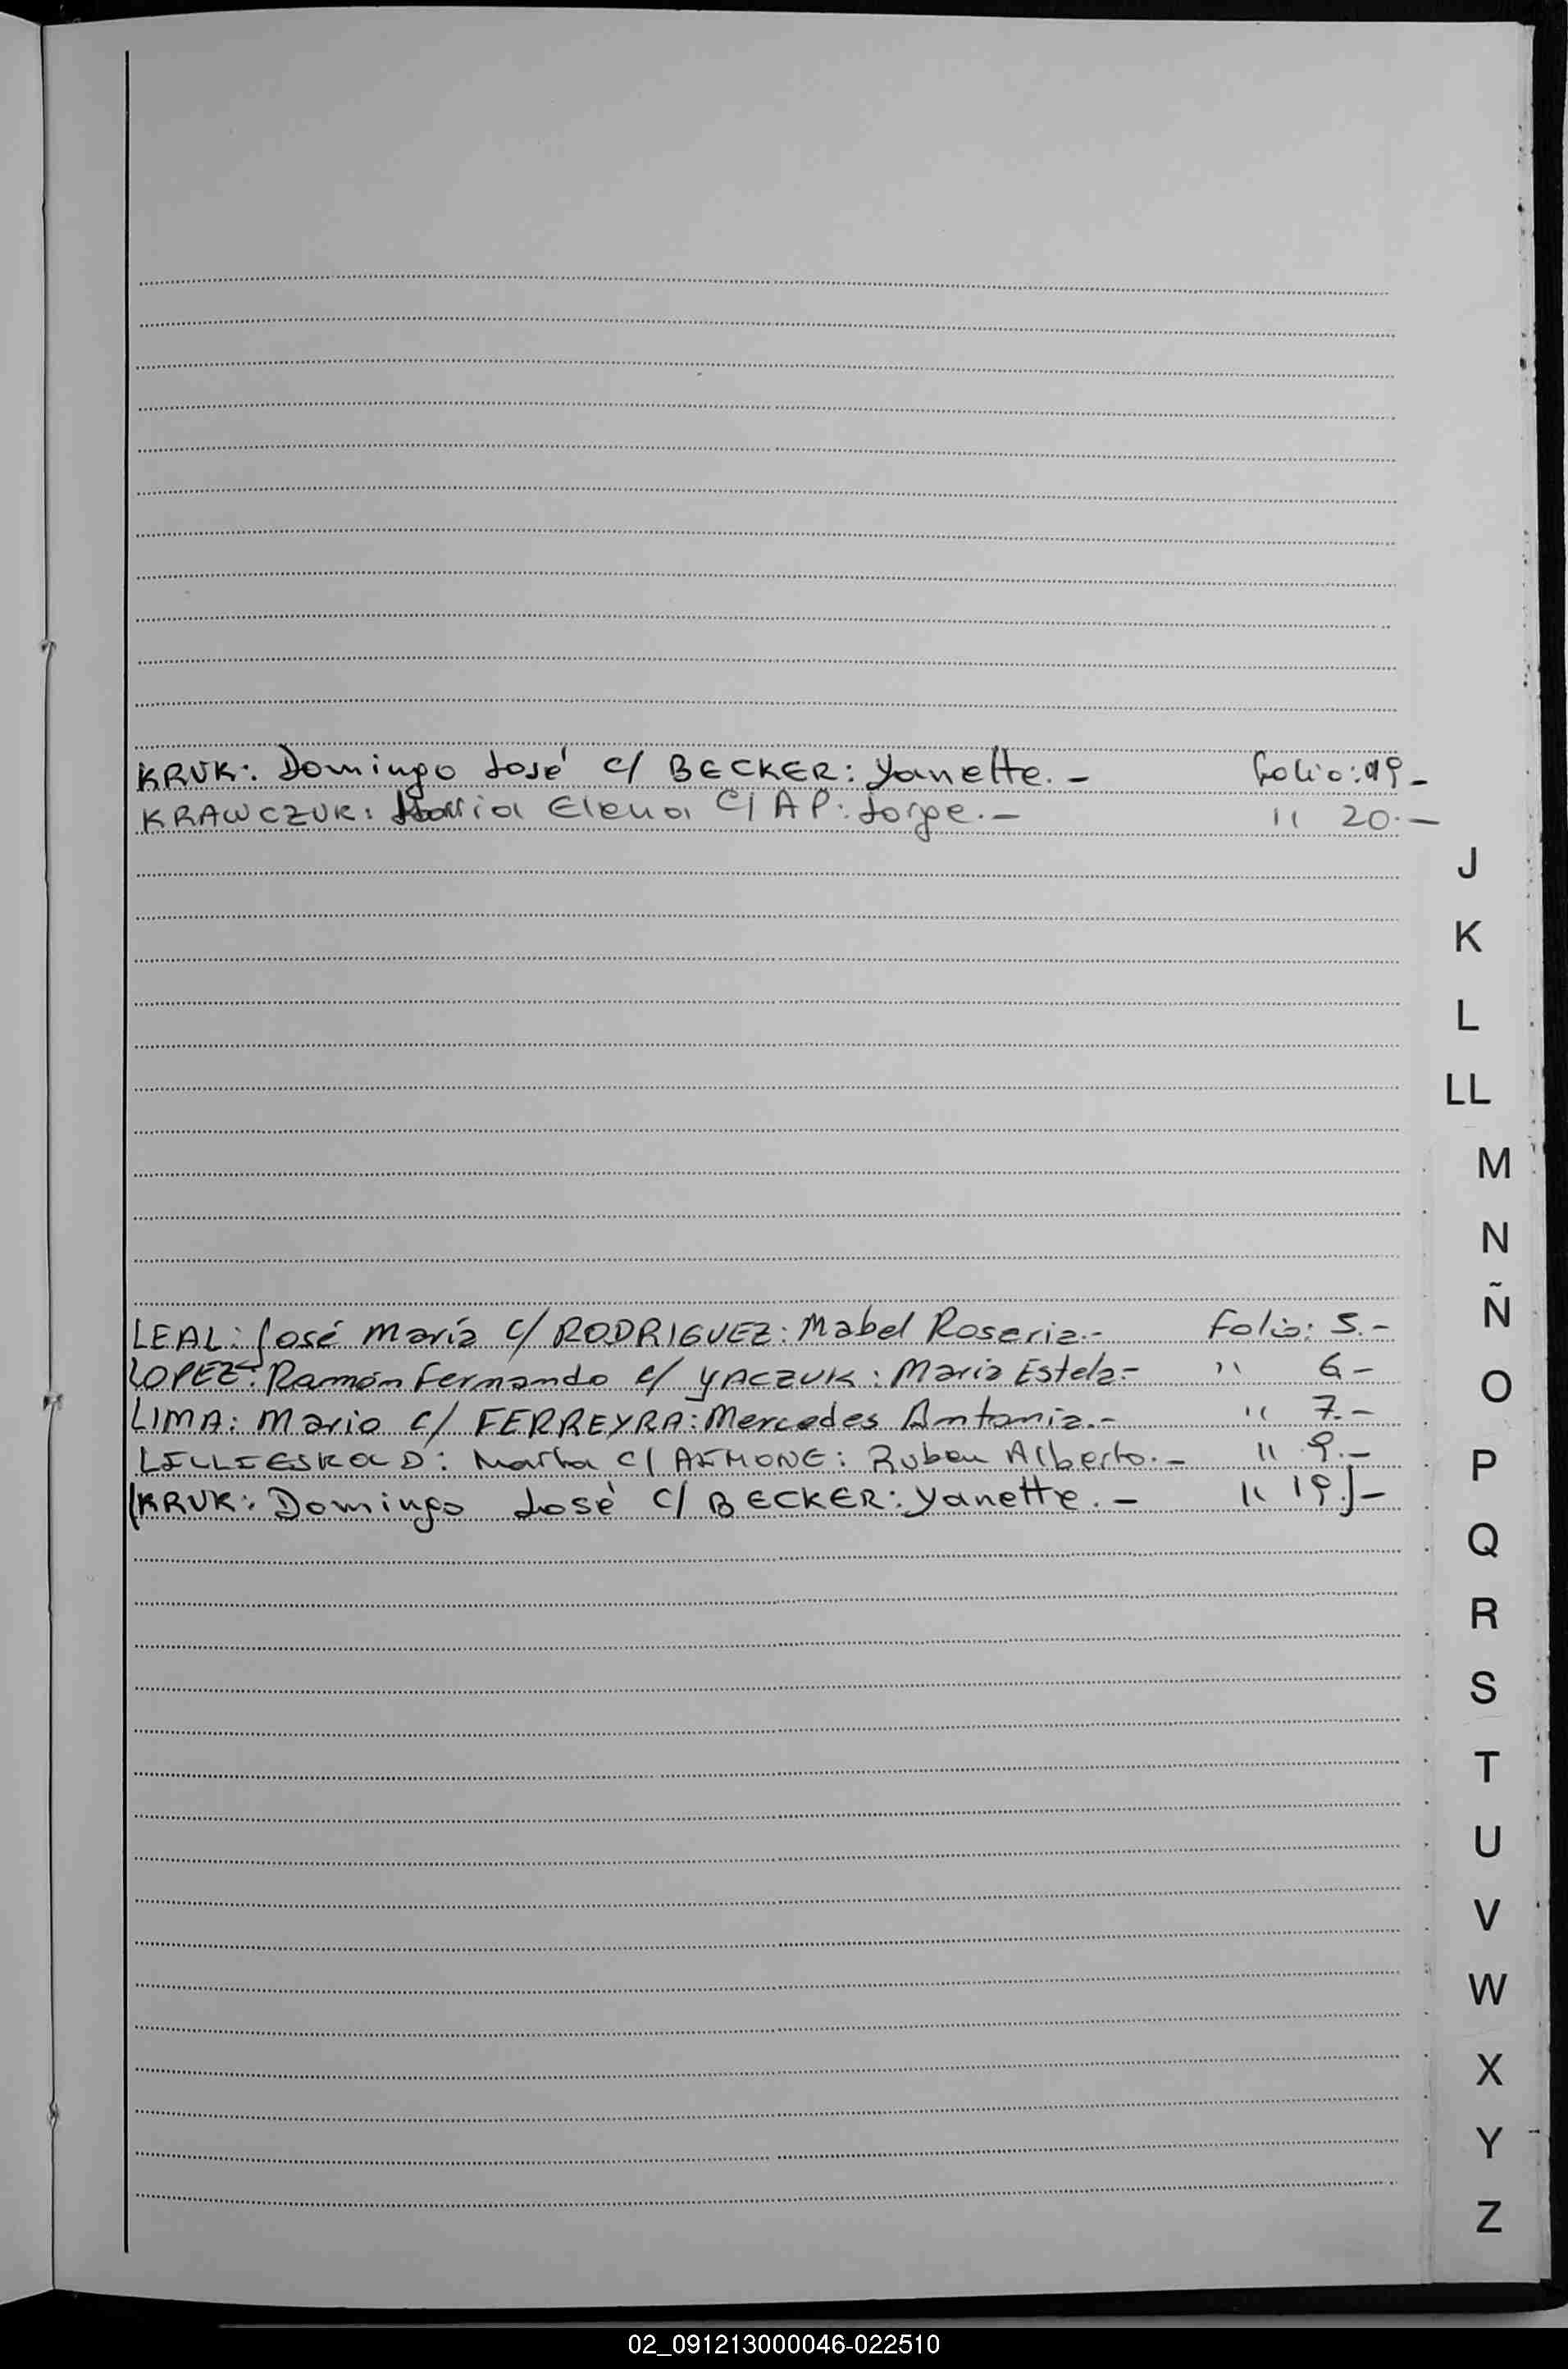 KRUK: Domingo José c/ BECKER: Yanette.- folio: 19-
KRAWCZUK: María Elena C/ AP: Jorge.- " 20.-
J
K
L
LL
M
N
Ñ
LEAL: José María c/ RODRIGUEZ: Mabel Roseria.- Folio: 5.-
LOPEZ: Ramón Fernando c/ YACZUK: Maria Estela- " 6-
O
LIMA: Mario c/ FERREYRA: Mercedes Antonia.- " 7.-
LILLIESKOLD: Marta C/ AIMONE: Ruben Alberto.- " 9.-
P
(KRUK: Domingo José c/ BECKER: Yanette.- " 19.)-
Q
R
S
T
U
V
W
X
Y
Z
02_091213000046-022510